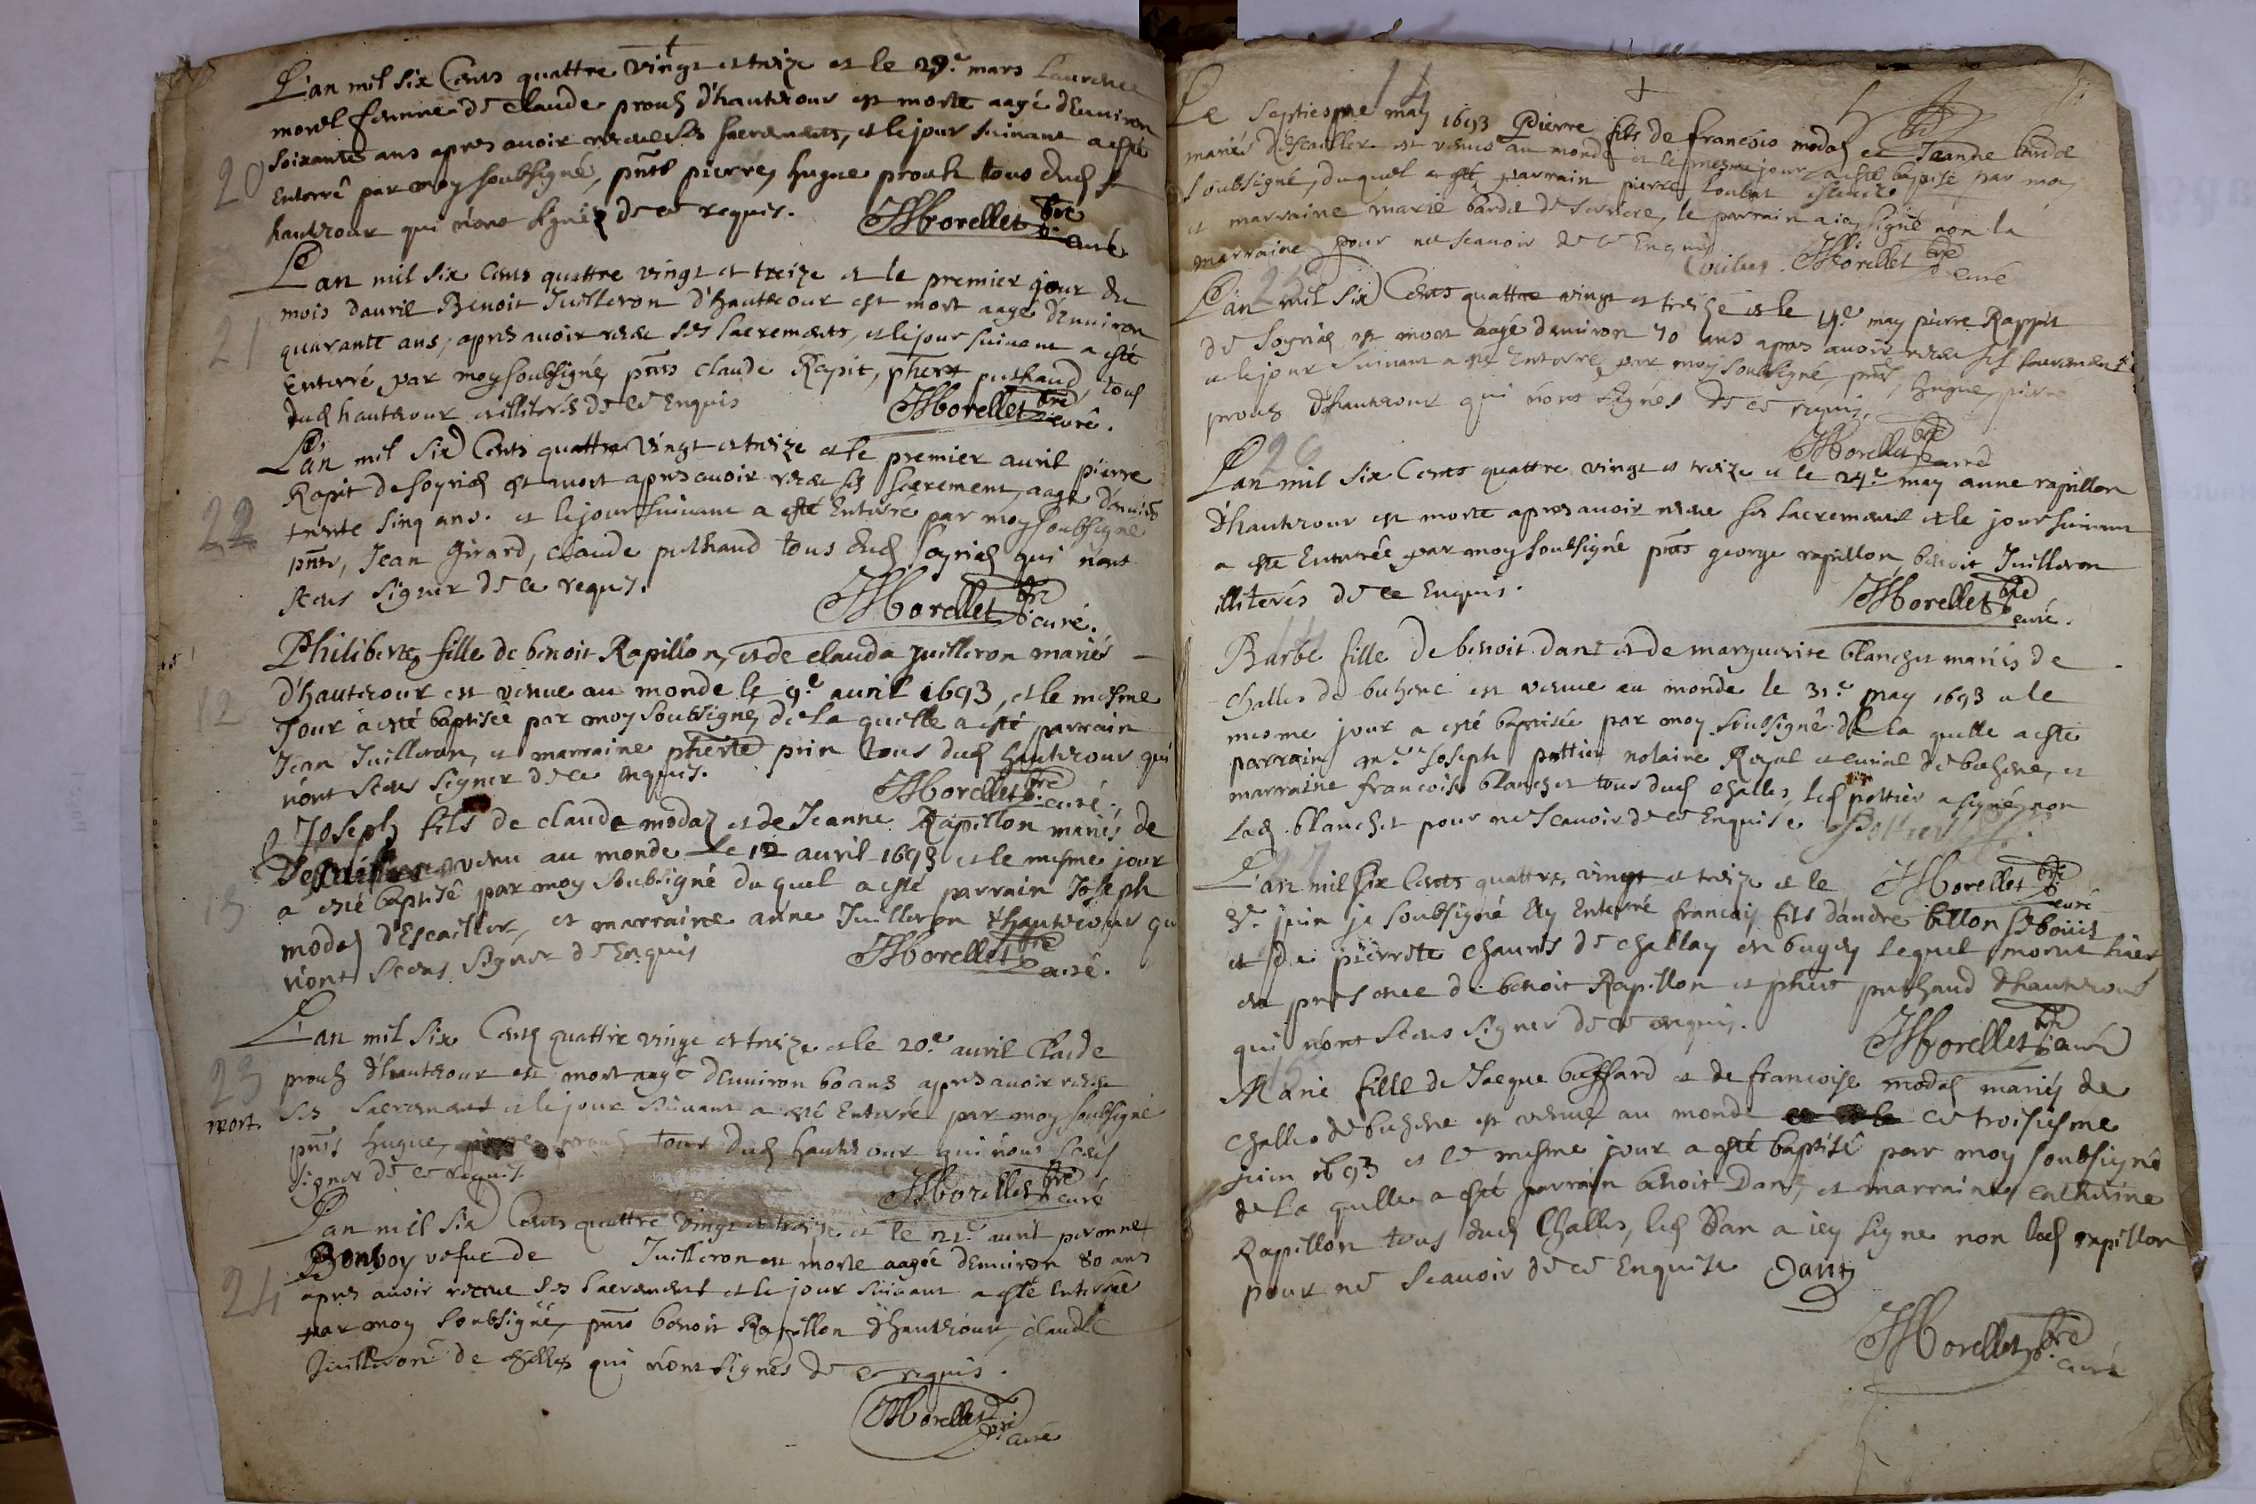 L'an mil six Cents quattre vingt et treize et le 29.e mars Laurence
morel femme de Claude prouz d'hautecour est morte aagé d'Environ
soixante ans apres avoir receu ses sacrements, et le jour suivant a esté
20
Enterré par moy soubsigné, pnts pierre, hugue prouz tous dud
hautecour qui n'ont signéz de ce requis.
JMorellet pbre curé
L'an mil six Cents quattre vingt et treize et le premier jour du
mois d'avril Benoit Juilleron d'hautecour est mort aagé d'Environ
21
quarante ans, apres avoir receu ses sacrements, et le jour suivant a esté
Enterré par moy soubsigné, pnts claude Rapit, phert puthaud, tous
dud hautecour et illiterés de ce Enquis
JMorellet pbre curé.
L'an mil six Cents quattre vingt et treize et le premier avril pierre
Rapit de soyriaz est mort apres avoir receu ses sacrement, aagé d'environ
22
trente sinq ans. et le jour suivant a esté Enterré par moy soubsigné
pnts, Jean Girard, claude puthaud tous dud soyriaz qui n'ont
sceus signer de ce requis.
JMorellet pbre curé.
Philiberte fille de benoit Rapillon, et de clauda Juilleron mariés
d'hautecour est venue au monde le 9.e avril 1693, et le mesme
12
Jour a esté baptisée par moy soubsigné, de la quelle a esté parrain
Jean Juilleron, et marraine pherte prin tous dud hautecour qui
n'ont sceus signer de ce enquis.
JMorellet pbre curé.
Joseph fils de claude modaz et de Jeanne Rapillon mariés de
venu au monde le 12 avril 1693 et le mesme jour
13
a esté baptisé par moy soubsigné du quel a esté parrain Joseph
modaz d'Escaillex, et marraine anne Juilleron d'hautecour qui
n'ont sceus signer de Enquis
JMorellet pbre curé.
L'an mil six Cents quattre vingt et treize et le 20.e avril Claude
23
prouz d'hautecour est mort aagé d'Environ 60 ans apres avoir receu
mort.
ses sacrement et le jour suivant a esté Enterré par moy soubsigné
pnts hugue, tous dud hautecour qui n'ont sceus
signer de ce requis
JMorellet pbre curé
L'an mil six Cents quattre vingt et treize et le 21.e avril peronne
Bonboy vefue de Juilleron est morte aagée d'Environ 80 ans
24
apres avoir receue ses sacrement et le jour suivant a esté Enterrée
par moy soubsigné, pnts benoit Rapillon d'hautecour, claude
Juilleron de qui n'ont signés de ce requis.
JMorellet pbre curé
14
Le septiesme may 1693 Pierre fils de francois modaz et Jeanne bardet
mariés d'Escaillex est venus au monde et le mesme jour a esté baptisé par moy
soubsigné, duquel a esté parrain pierre
et marraine marie bardet de, le parrain a icy signé non la
marraine pour ne scavoir de ce Enquis
JMorellet pbre curé
25
L'an mil six Cents quattre vingt et treize et le 14.e may pierre Rappit
de soyriaz est mort aagé d'environ 70 ans apres avoir receu ses sacrements
et le jour suivant a esté Enterré par moy soubsigné, pnts, hugue, pierre
prouz d'hautecour qui n'ont signés de ce requis.
JMorellet pbre curé
26
L'an mil six Cents quattre vingt et treize et le 24.e may anne rapillon
d'hautecour est morte apres avoir receu ses sacrement et le jour suivant
a esté Enterrée par moy soubsigné pnts george rapillon, benoit Juilleron
illiterés de ce Enquis.
JMorellet pbre curé.
Barbe fille de benoit dant et de marguerite blanchet mariés de
challes de bohene est venue au monde le 31.e may 1693 et le
mesme jour a esté baptisée par moy soubsigné de la quelle a esté
parrain m.e Joseph pottier notaire Royal et curial de bohene, et
marraine francoise blanchet tous dud challes, led pottier a signé, non
lad blanchet pour ne scavoir de ce Enquise
Pottier
27
L'an mil six Cents quattre vingt et treize et le
JMorellet pbre curé
3.e juin je soubsigné ay Enterré francois fils d'andre billon
et de pierrete chaunes de challay en bugey lequel morut hier
en presence de benoit Rapillon et phert puthaud d'hautecour
qui n'ont sceus signer de ce enquis.
JMorellet pbre curé
Marie fille de Jacque buffard et de francoise modaz mariés de
challes de bohene est venue au monde ce troisiesme
juin 1693 et le mesme jour a esté baptisé par moy soubsigné
de la quelle a esté parrain benoit Dant, et marraine catherine
Rapillon tous dud Challes, led Dan a icy signe non lad rapillon
pour ne scavoir de ce Enquise Dant
JMorellet pbre curé